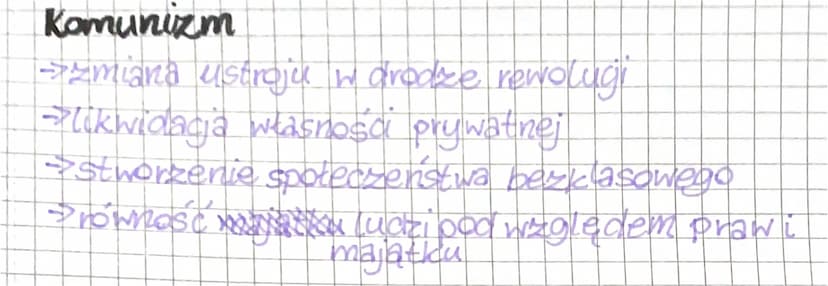 Komunizm
→zmiana ustroju w drodze rewolucji
→likwidacja własności prywatnej
→stworzenie społeczeństwa bezklasowego
→równość ludzi pod względem praw i
majątku